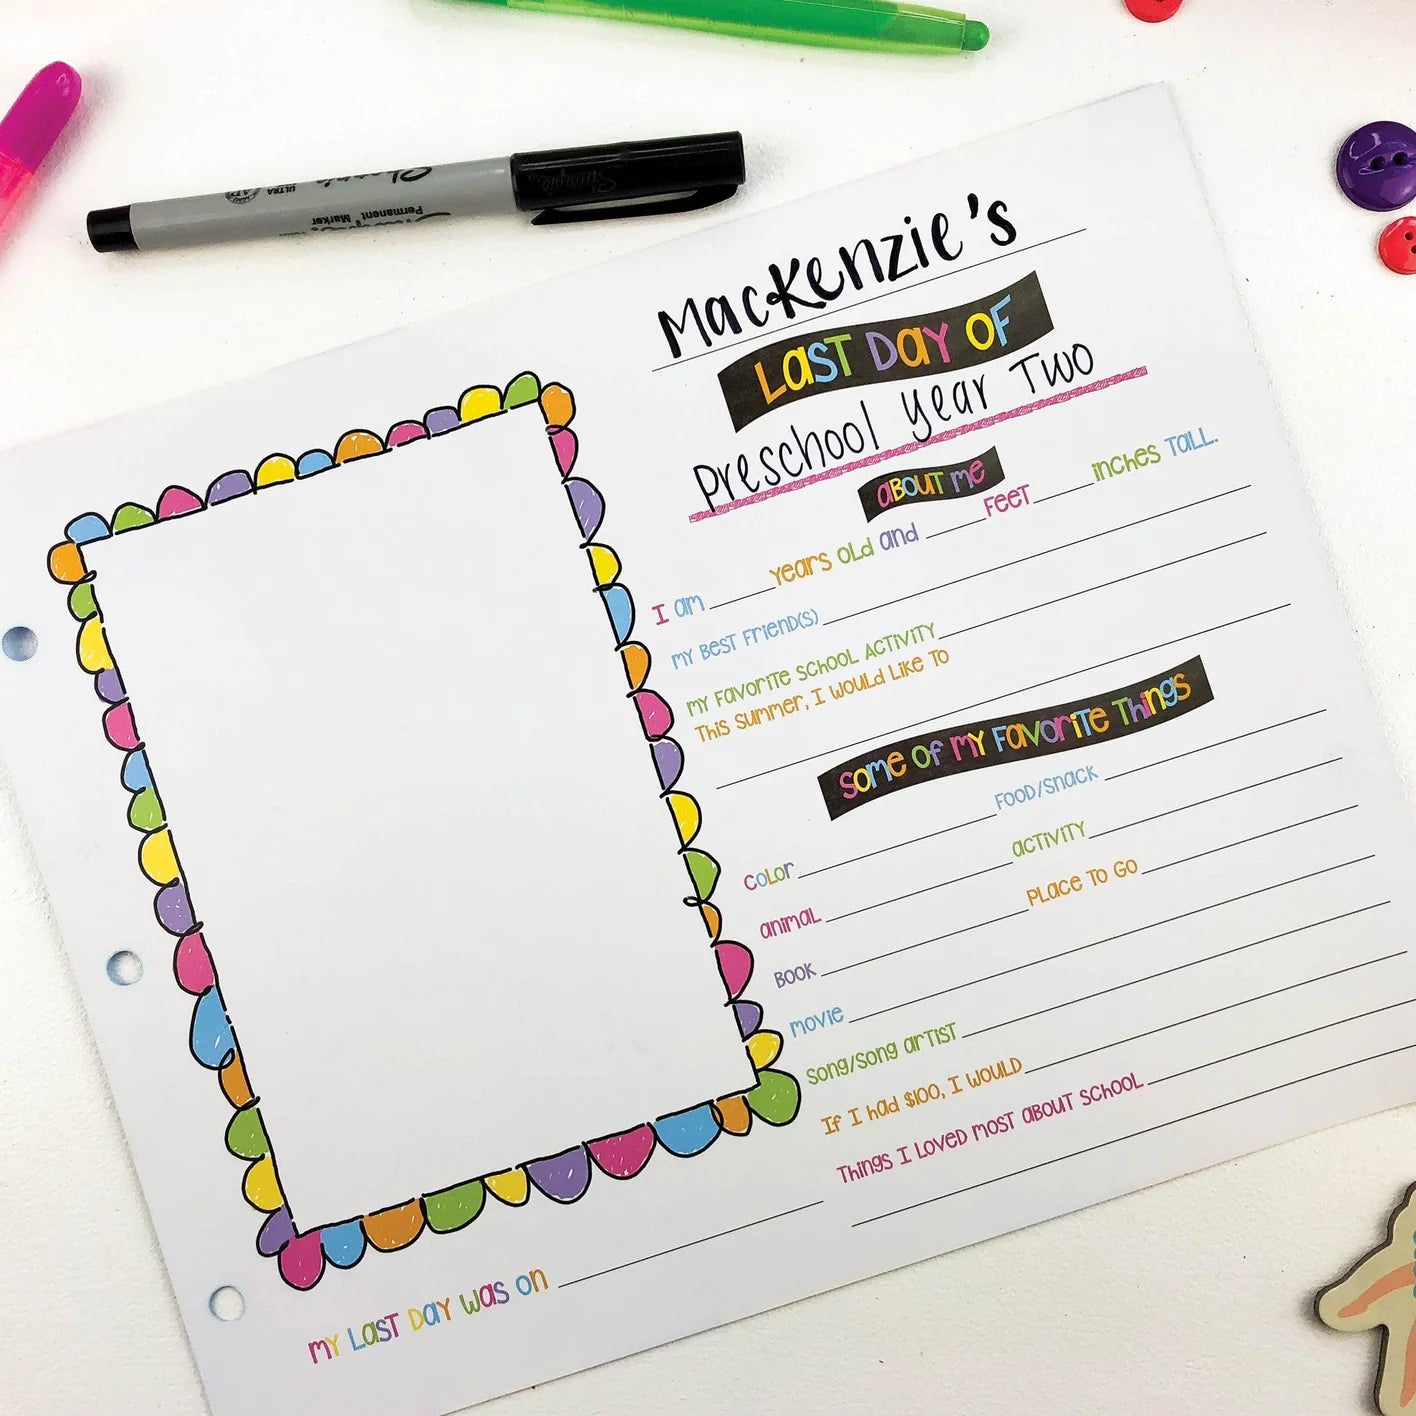 Sharpie
ULTRA
Permanent Marker
Sharpie
MacKenzie's
LAST DAY OF
Preschool Year Two
ABOUT ME
I am ______ years old and ______ feet ______ inches tall.
My best friend(s) ______
My favorite school activity ______
This summer, I would like to ______
Some of my favorite things
color ______ food/snack ______
animal ______ activity ______
book ______ place to go ______
movie ______
song/song artist ______
If I had $100, I would ______
Things I loved most about school ______
My last day was on ______